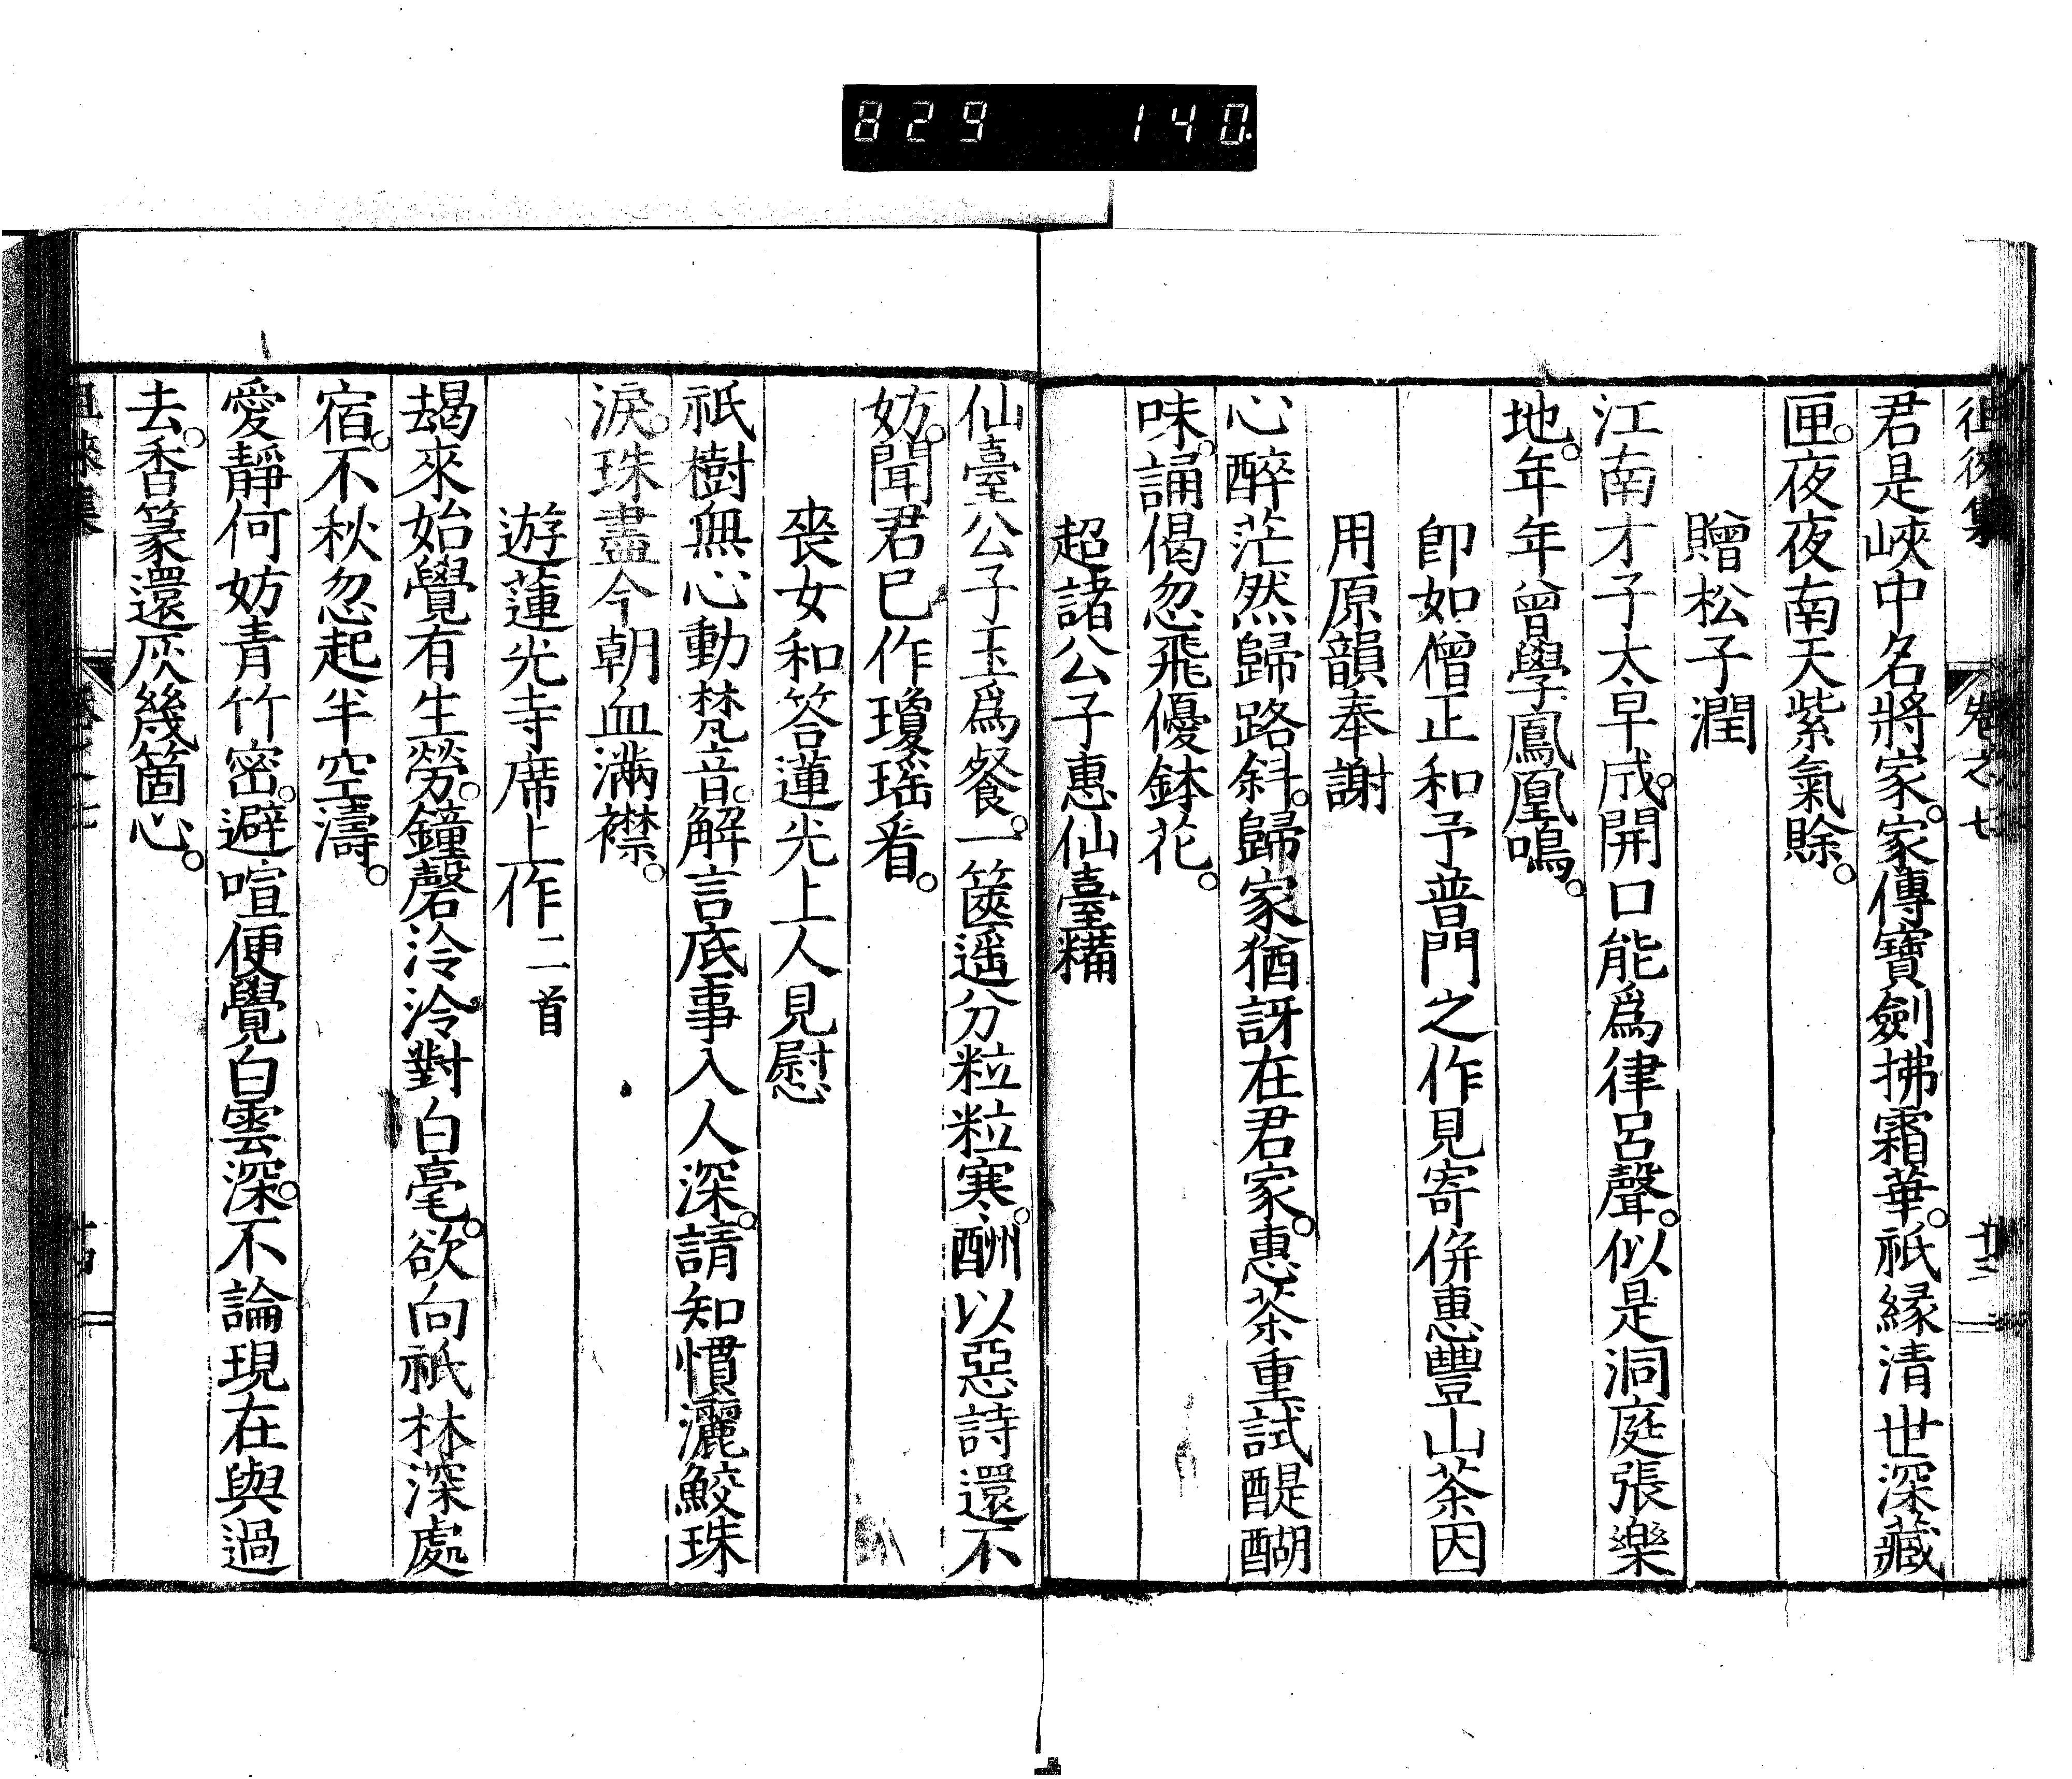 829 140.
徂徠集 卷之七 十三
君是峽中名將家。家傳寶劍拂霜華。祇緣清世深藏
匣。夜夜南天紫氣賒。
贈松子潤
江南才子太早成。開口能爲律呂聲。似是洞庭張樂
地。年年曾學鳳凰鳴。
卽如僧正和予普門之作見寄併惠豐山茶因
用原韻奉謝
心醉茫然歸路斜。歸家猶訝在君家。惠茶重試醍醐
味。誦偈忽飛優鉢花。
超諸公子惠仙臺糒
仙臺公子玉爲餐。一篋遥分粒粒寒。酬以惡詩還不
妨。聞君已作瓊瑤看。
喪女和答蓮光上人見慰
祇樹無心動梵音。解言底事入人深。請知慣灑鮫珠
淚。珠盡今朝血滿襟。
遊蓮光寺席上作二首
朅來始覺有生勞。鐘磬泠泠對白毫。欲向祇林深處
宿。不秋忽起半空濤。
愛靜何妨青竹密。避喧便覺白雲深。不論現在與過
去。香篆還灰幾箇心。